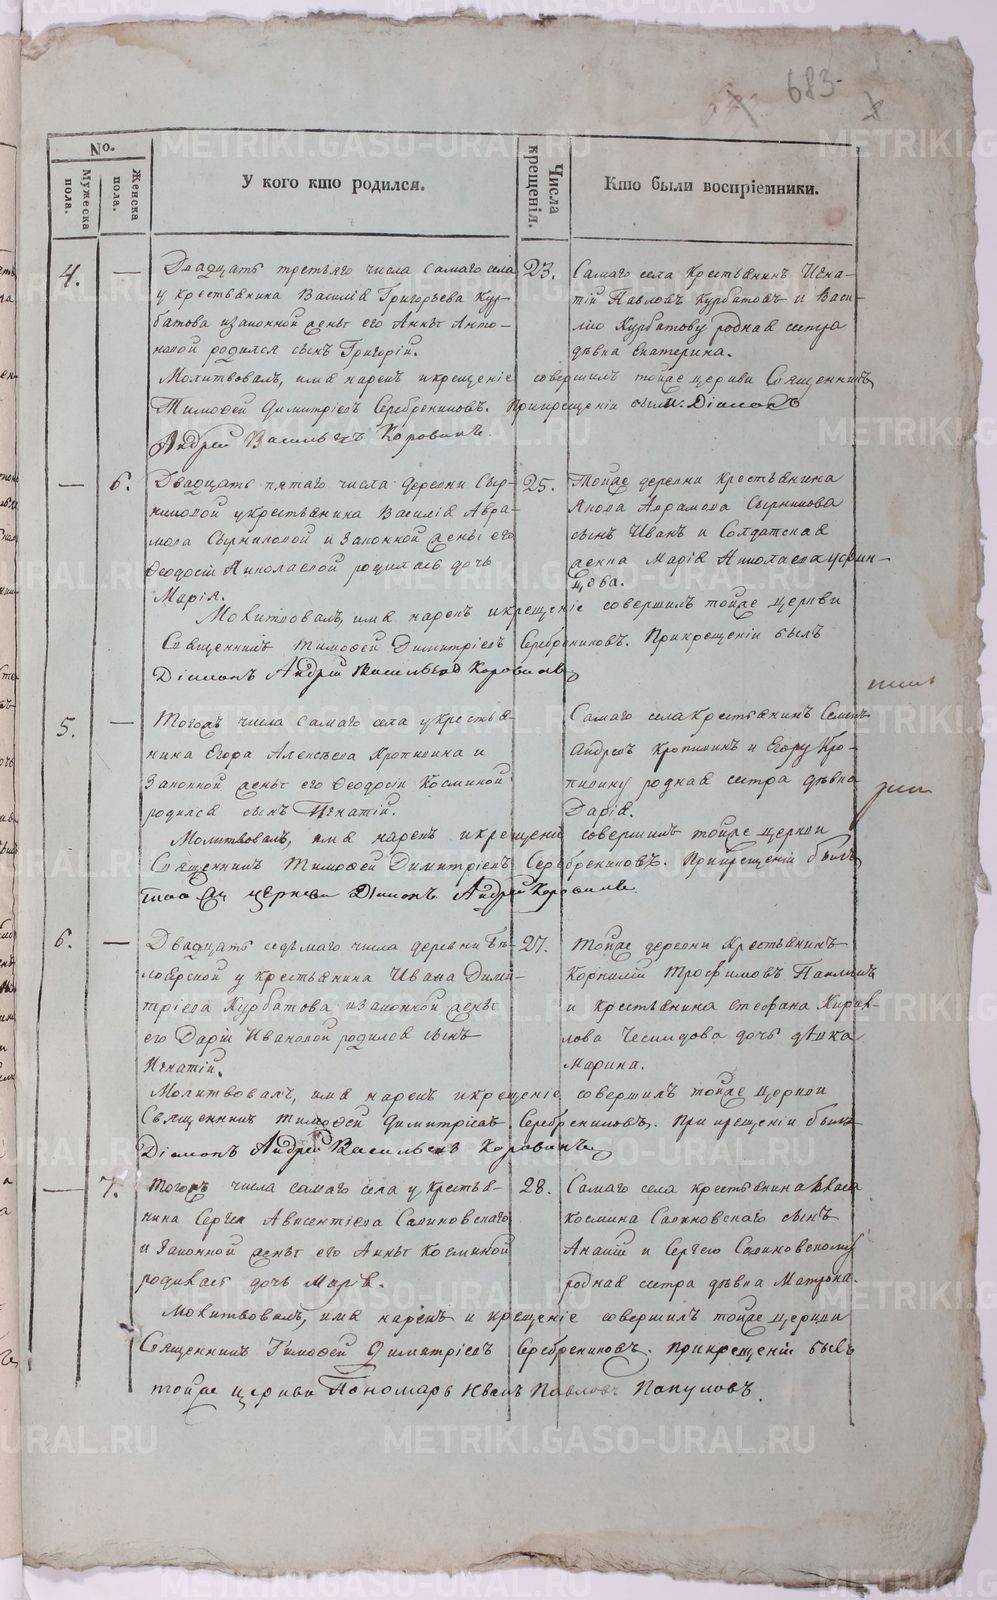 683
No.
Мужеска пола.
Женска пола.
У кого кто родился.
Числа крещенія.
Кто были воспріемники.
4. —
Двадцать третьяго числа самаго села
у крестьянина Василія Григорьева Кур-
батова и законной жены его Анны Анто-
новой родился сынъ Григорій.
23.
Самаго села крестьянинъ Игна-
тій Павловъ Курбатовъ и Васи-
лію Курбатову родная сестра
дѣвка Екатерина.
Молитвовалъ, имя нарекъ и крещеніе совершилъ тойже церкви Священникъ
Тимофей Димитріевъ Серебрениковъ. При крещеніи былъ Діаконъ
Андрей Васильевъ Коровинъ.
— 6.
Двадцать пятаго числа деревни Сыр-
никовой у крестьянина Василія Авра-
мова Сырникова и законной жены его
Феодосіи Николаевой родилась дочь
Марія.
25.
Тойже деревни крестьянина
Якова Аврамова Сырникова
сынъ Иванъ и Солдатская
женка Марія Николаева
цова.
Молитвовалъ, имя нарекъ и крещеніе совершилъ тойже церкви
Священникъ Тимофей Димитріевъ Серебрениковъ. При крещеніи былъ
Діаконъ Андрей Васильевъ Коровинъ
5. —
Тогожъ числа самаго села у крестья-
нина Егора Алексѣева Кропкина и
законной жены его Феодосіи Козминой
родился сынъ Игнатій.
Самаго села крестьянинъ Семенъ
Андреевъ и Егору
родная сестра дѣвка
Дарія.
Молитвовалъ, имя нарекъ и крещеніе совершилъ тойже церкви
Священникъ Тимофей Димитріевъ Серебрениковъ. При крещеніи былъ
тоя же церкви Діаконъ Андрей Коровинъ
6. —
Двадцать седьмаго числа деревни Бѣ-
лоярской у крестьянина Ивана Дими-
тріева Курбатова и законной жены
его Даріи Ивановой родился сынъ
Игнатій.
27.
Тойже деревни крестьянинъ
Корнилій Трофимовъ
и крестьянина Стефана Кирил-
лова дочь дѣвка
Марина.
Молитвовалъ, имя нарекъ и крещеніе совершилъ тойже церкви
Священникъ Тимофей Димитріевъ Серебрениковъ. При крещеніи былъ
Діаконъ Андрей Васильевъ Коровинъ
— 7.
Тогожъ числа самаго села у крестья-
нина Сергея Авксентіева Салиновскаго
и законной жены его Анны Козминой
родилась дочь Марія.
28.
Самаго села крестьянина
Космина Салиновскаго сынъ
Ананій и Сергею Салиновскому
родная сестра дѣвка Матрона.
Молитвовалъ, имя нарекъ и крещеніе совершилъ тойже церкви
Священникъ Тимофей Димитріевъ Серебрениковъ. При крещеніи былъ
тойже церкви Пономарь Иванъ Павловъ Популовъ.
METRIKI.GASO-URAL.RU